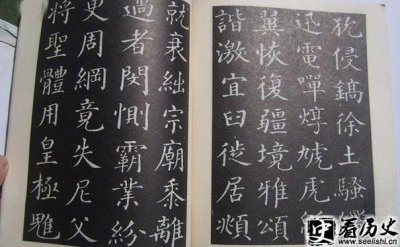 狁侵鎬徐土騷
迅電嘽焞虓虎
冀恢復疆境雅頌
諧激宜臼徙居
就衰絀宗廟乖離
過者閔惻霸業紛
更周綱竟失尼父
將聖體用皇極雕
看历史
www.seelishi.cn